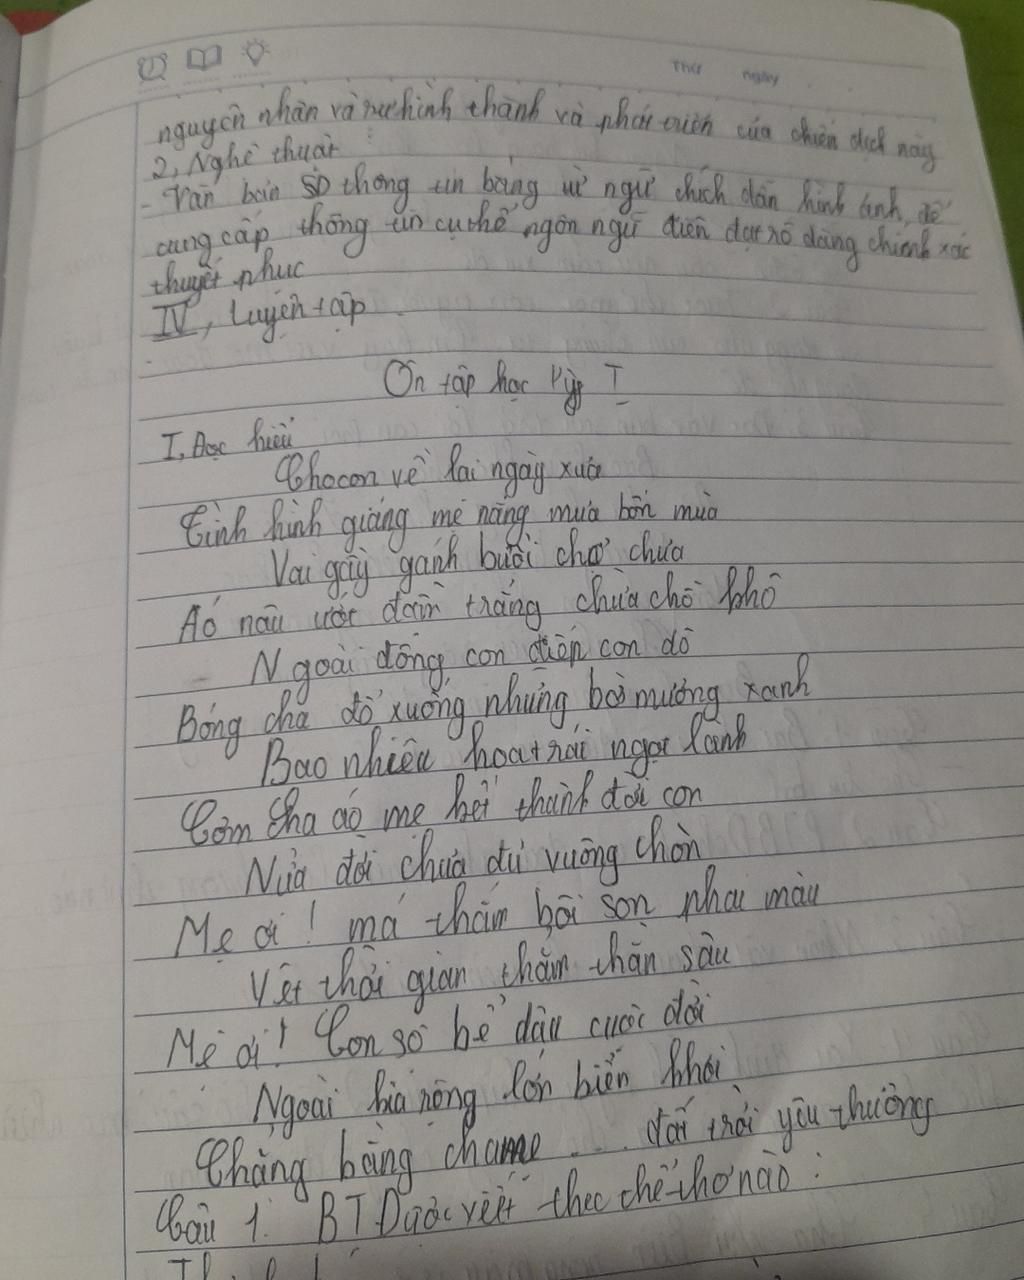 Thứ ngày
nguyên nhân và sự hình thành và phát triển của chiến dịch này
2, Nghệ thuật
- Văn bản sd thông tin bằng từ ngữ chích dẫn hình ảnh, để
cung cấp thông tin cụ thể ngôn ngữ diễn đạt rõ dàng chính xác
thuyết phục
IV, Luyện tập
Ôn tập học kỳ I
I, Đọc hiểu
Cho con về lại ngày xưa
Tình hình giáng mẹ nắng mưa bốn mùa
Vai gầy gánh buổi chợ chưa
Áo nâu ướt đẫm trắng chưa chỗ khô
Ngoài đồng con diệp con đô
Bóng cha đổ xuống những bờ mương xanh
Bao nhiêu hoa trái ngọt lành
Cơm cha áo mẹ kết thành đời con
Nửa đời chưa đủ vuông chòn
Mẹ ơi! má thắm bôi son phai màu
Vết thời gian thăm thẳn sâu
Mẹ ơi! Con sợ bể dâu cuộc đời
Ngoài kia rộng lớn biển khơi
Chẳng bằng cha mẹ ... đất trời yêu thương
Câu 1. BT Được viết theo thể thơ nào: